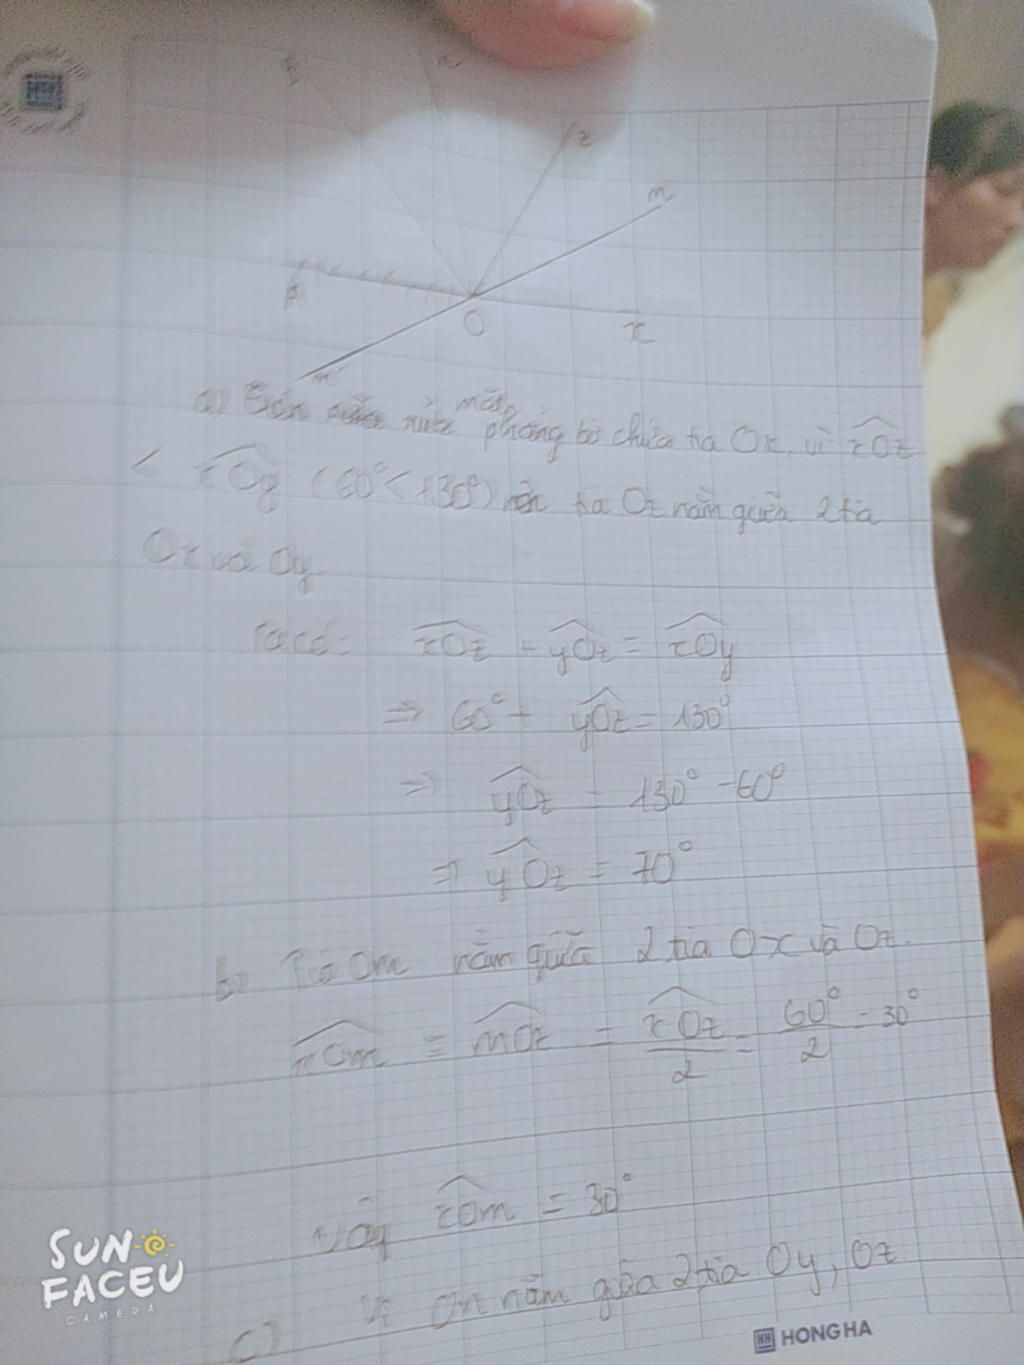 n
z
m
A
O
x
m'
a) nửa mặt phẳng bờ chứa tia Ox, vì xOz
< xOy (60° < 130°) nên tia Oz nằm giữa 2 tia
Ox và Oy.
Ta có: xOz + yOz = xOy
⇒ 60° + yOz = 130°
⇒ yOz = 130° - 60°
⇒ yOz = 70°
b) Tia Om nằm giữa 2 tia Ox và Oz.
xOm = mOz = xOz/2 = 60°/2 = 30°
Vậy xOm = 30°
c) Vì On nằm giữa 2 tia Oy, Oz
SUN FACEU
CAMERA
HH HONG HA